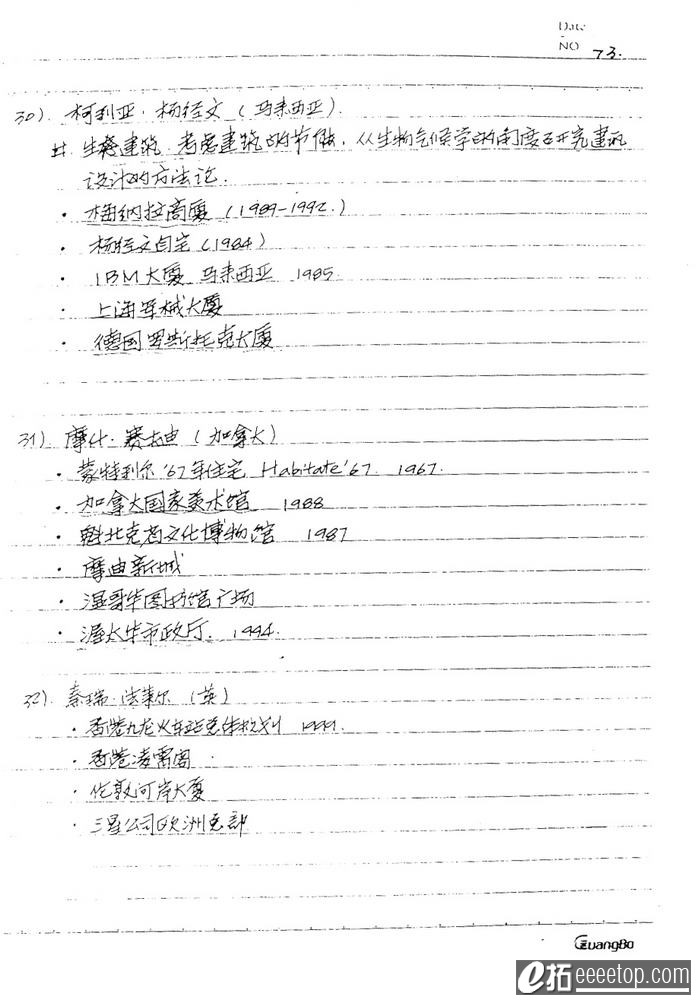 Date
NO 73.
30). 柯利亚·杨经文 (马来西亚).
生态建筑. 考虑建筑的节能, 从生物气候学的角度研究建筑
设计的方法论.
· 梅纳拉商厦 (1989-1992.)
· 杨经文自宅 (1984)
· IBM大厦 马来西亚 1985
· 上海军械大厦
· 德国罗斯托克大厦
31). 摩什·赛夫迪 (加拿大)
· 蒙特利尔'67年住宅 Habitate'67. 1967.
· 加拿大国家美术馆 1988
· 魁北克省文化博物馆 1987
· 摩迪新城
· 温哥华图书馆广场
· 渥太华市政厅. 1994.
32). 泰瑞·法莱尔 (英)
· 香港九龙火车站总体规划 1999.
· 香港凌霄阁
· 伦敦河岸大厦
· 三星公司欧洲总部
GuangBo
e拓 eeeetop.com